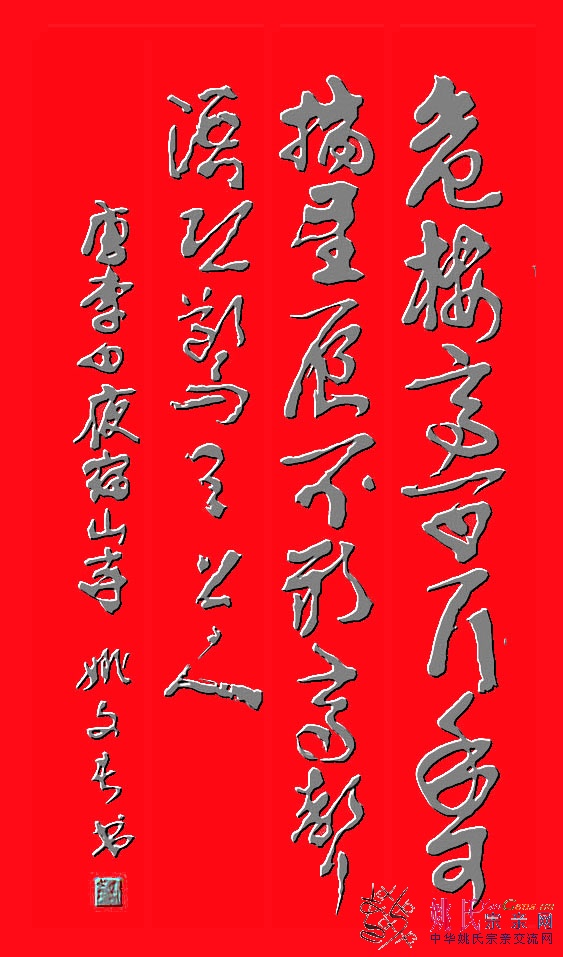 危楼高百尺手可
摘星辰不敢高聲
語恐驚天上人
唐李白夜宿山寺 姚文书
姚氏宗亲网
中华姚氏宗亲交流网